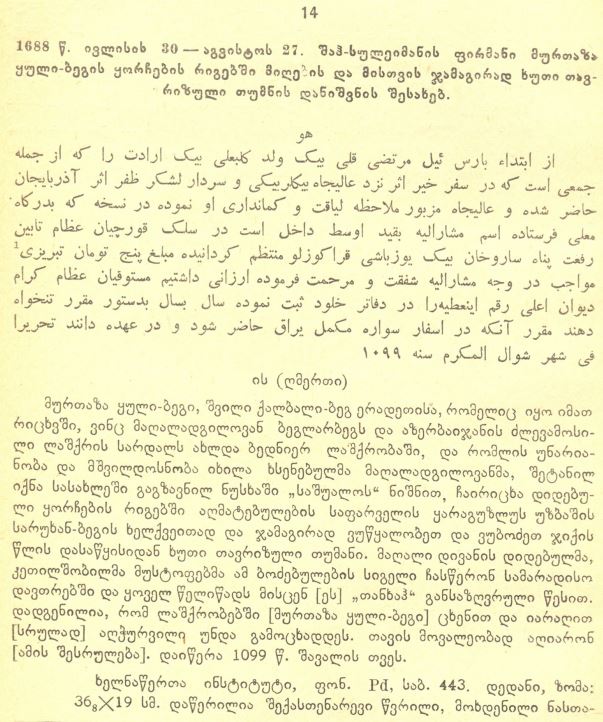 14
1688 წ. ივლისის 30 — აგვისტოს 27. შაჰ-სულეიმანის ფირმანი მურთაზა
ყული-ბეგის ყორჩების რიგებში მიღების და მისთვის ჯამაგირად ხუთი თავ-
რიზული თუმნის დანიშვნის შესახებ.
هو
از ابتداء بارس ئیل مرتضی قلی بیک ولد کلبعلی بیک ارادت را که از جمله
جمعی است که در سفر خیر اثر نزد عالیجاه بیکلربیکی و سردار لشکر ظفر اثر آذربایجان
حاضر شده و عالیجاه مزبور ملاحظه لیاقت و کمانداری او نموده در نسخه که بدرکاه
معلی فرستاده اسم مشارالیه بقید اوسط داخل است در سلک قورچیان عظام تابین
رفعت پناه ساروخان بیک یوزباشی قراکوزلو منتظم کردانیده مبلغ پنج تومان تبریزی1
مواجب در وجه مشارالیه شفقت و مرحمت فرموده ارزانی داشتیم مستوفیان عظام کرام
دیوان اعلی رقم اینعطیه‌را در دفاتر خلود ثبت نموده سال بسال بدستور مقرر تنخواه
دهند مقرر آنکه در اسفار سواره مکمل یراق حاضر شود و در عهده دانند تحریرا
فی شهر شوال المکرم سنه ۱۰۹۹
ის (ღმერთი)
მურთაზა ყული-ბეგი, შვილი ქალბალი-ბეგ ერადეთისა, რომელიც იყო იმათ
რიცხვში, ვინც მაღალადგილოვან ბეგლარბეგს და აზერბაიჯანის ძლევამოსი-
ლი ლაშქრის სარდალს ახლდა ბედნიერ ლაშქრობაში, და რომლის უნარია-
ნობა და მშვილდოსნობა იხილა ხსენებულმა მაღალადგილოვანმა, შეტანილ
იქნა სასახლეში გაგზავნილ ნუსხაში „საშუალოს“ ნიშნით, ჩაირიცხა დიდებუ-
ლი ყორჩების რიგებში აღმატებულების საფარველის ყარაგუზლუს უზბაშის
სარუხან-ბეგის ხელქვეითად და ჯამაგირად ვუწყალობეთ და ვუბოძეთ ჯიქის
წლის დასაწყისიდან ხუთი თავრიზული თუმანი. მაღალი დივანის დიდებულმა,
კეთილშობილმა მუსტოფებმა ამ ბოძებულების სიგელი ჩასწერონ სამარადისო
დავთრებში და ყოველ წელიწადს მისცენ [ეს] „თანხაჰ“ განსაზღვრული წესით.
დადგენილია, რომ ლაშქრობებში [მურთაზა ყული-ბეგი] ცხენით და იარაღით
[სრულად] აღჭურვილი უნდა გამოცხადდეს. თავის მოვალეობად აღიარონ
[ამის შესრულება]. დაიწერა 1099 წ. შავალის თვეს.
ხელნაწერთა ინსტიტუტი, ფონ. Pd, საბ. 443. დედანი, ზომა:
36,8×19 სმ. დაწერილია შექასთენარევი წვრილი, მოხდენილი ნასთა-